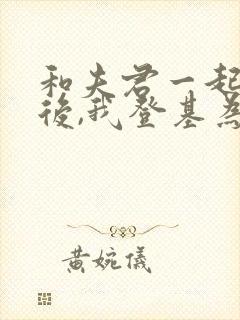 和夫君一起
後,我登基為
黄婉儀